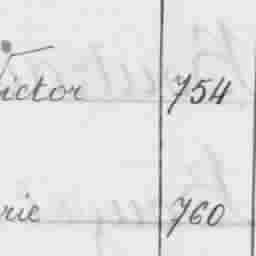 ictor 754
rie 760